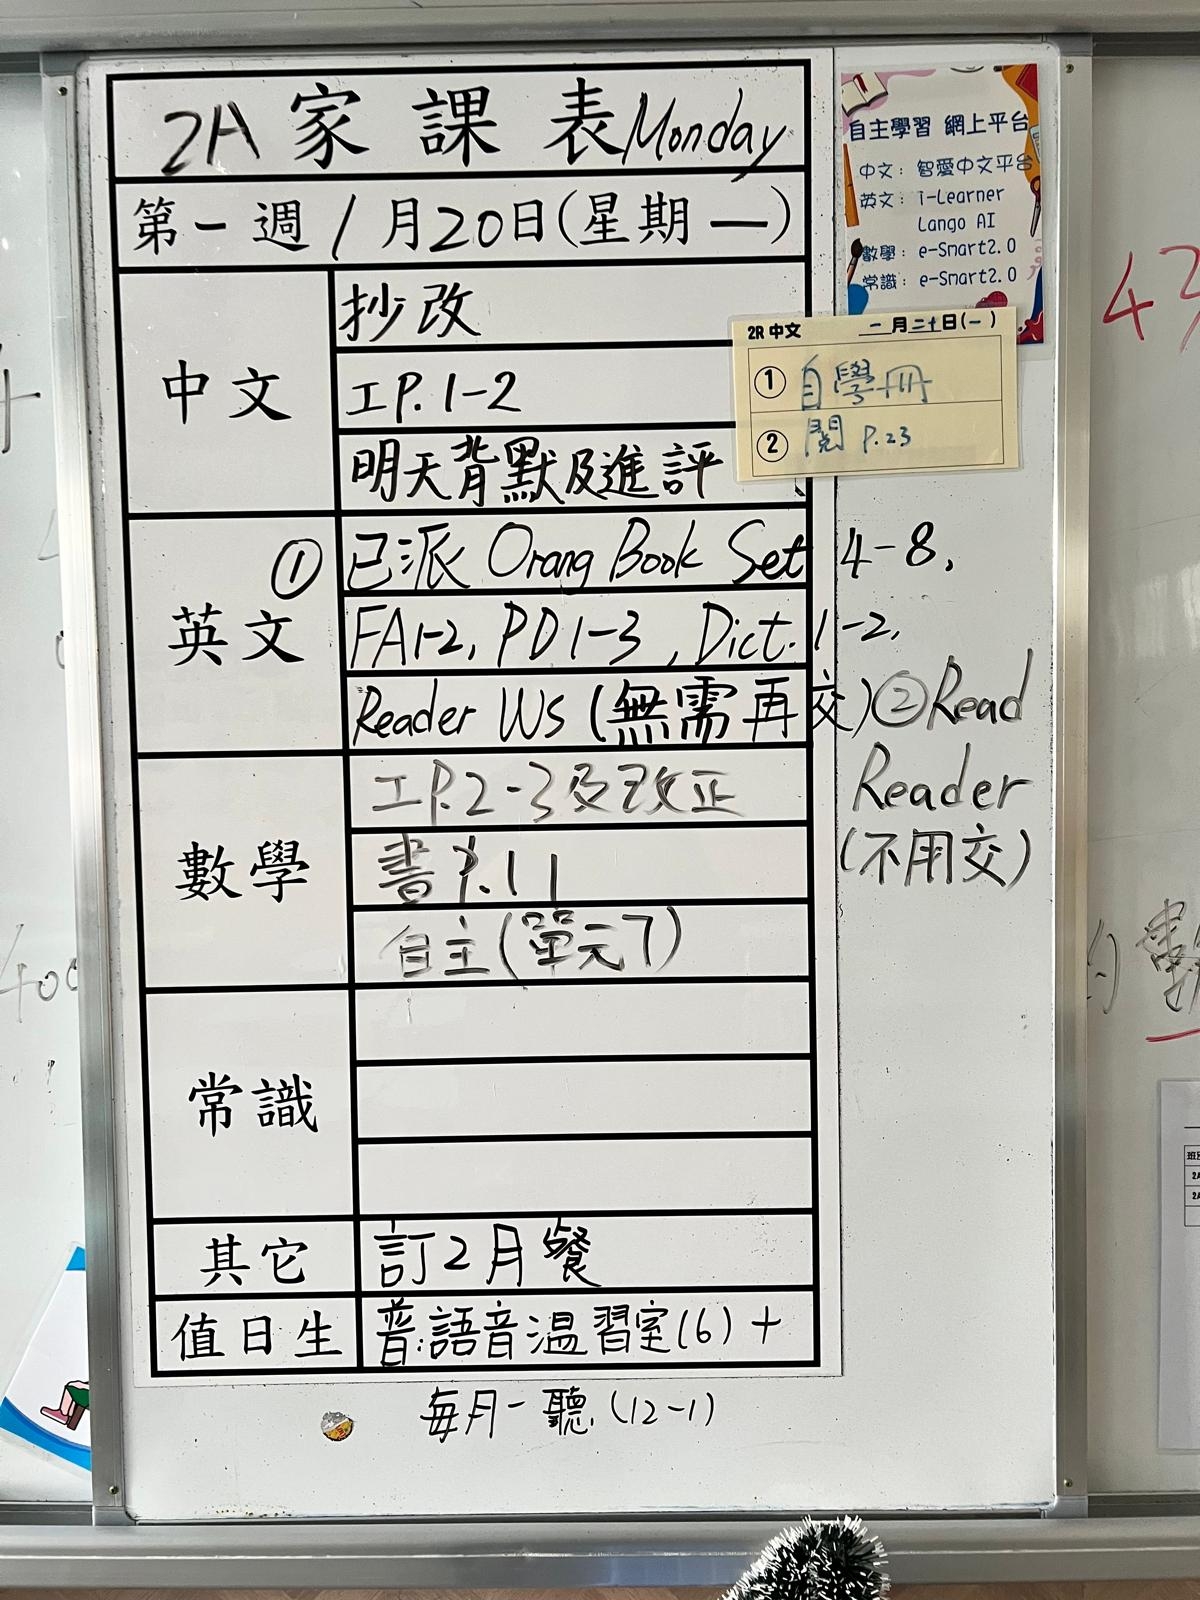 2A 家課表 Monday
第一週 1月20日(星期一)
中文
抄改
工P.1-2
明天背默及進評
英文
① 已派 Orang Book Set 4-8,
FA1-2, PD1-3, Dict. 1-2,
Reader WS (無需再交) ② Read
Reader
(不用交)
數學
工P.2-3及改正
書P.11
自主(單元7)
常識
其它
訂2月餐
值日生
普:語音溫習室(6)+
每月一聽(12-1)
自主學習 網上平台
中文: 智愛中文平台
英文: i-Learner
Lango AI
數學: e-Smart2.0
常識: e-Smart2.0
2R 中文 一月二十日(一)
① 自學冊
② 閱 P.23
400